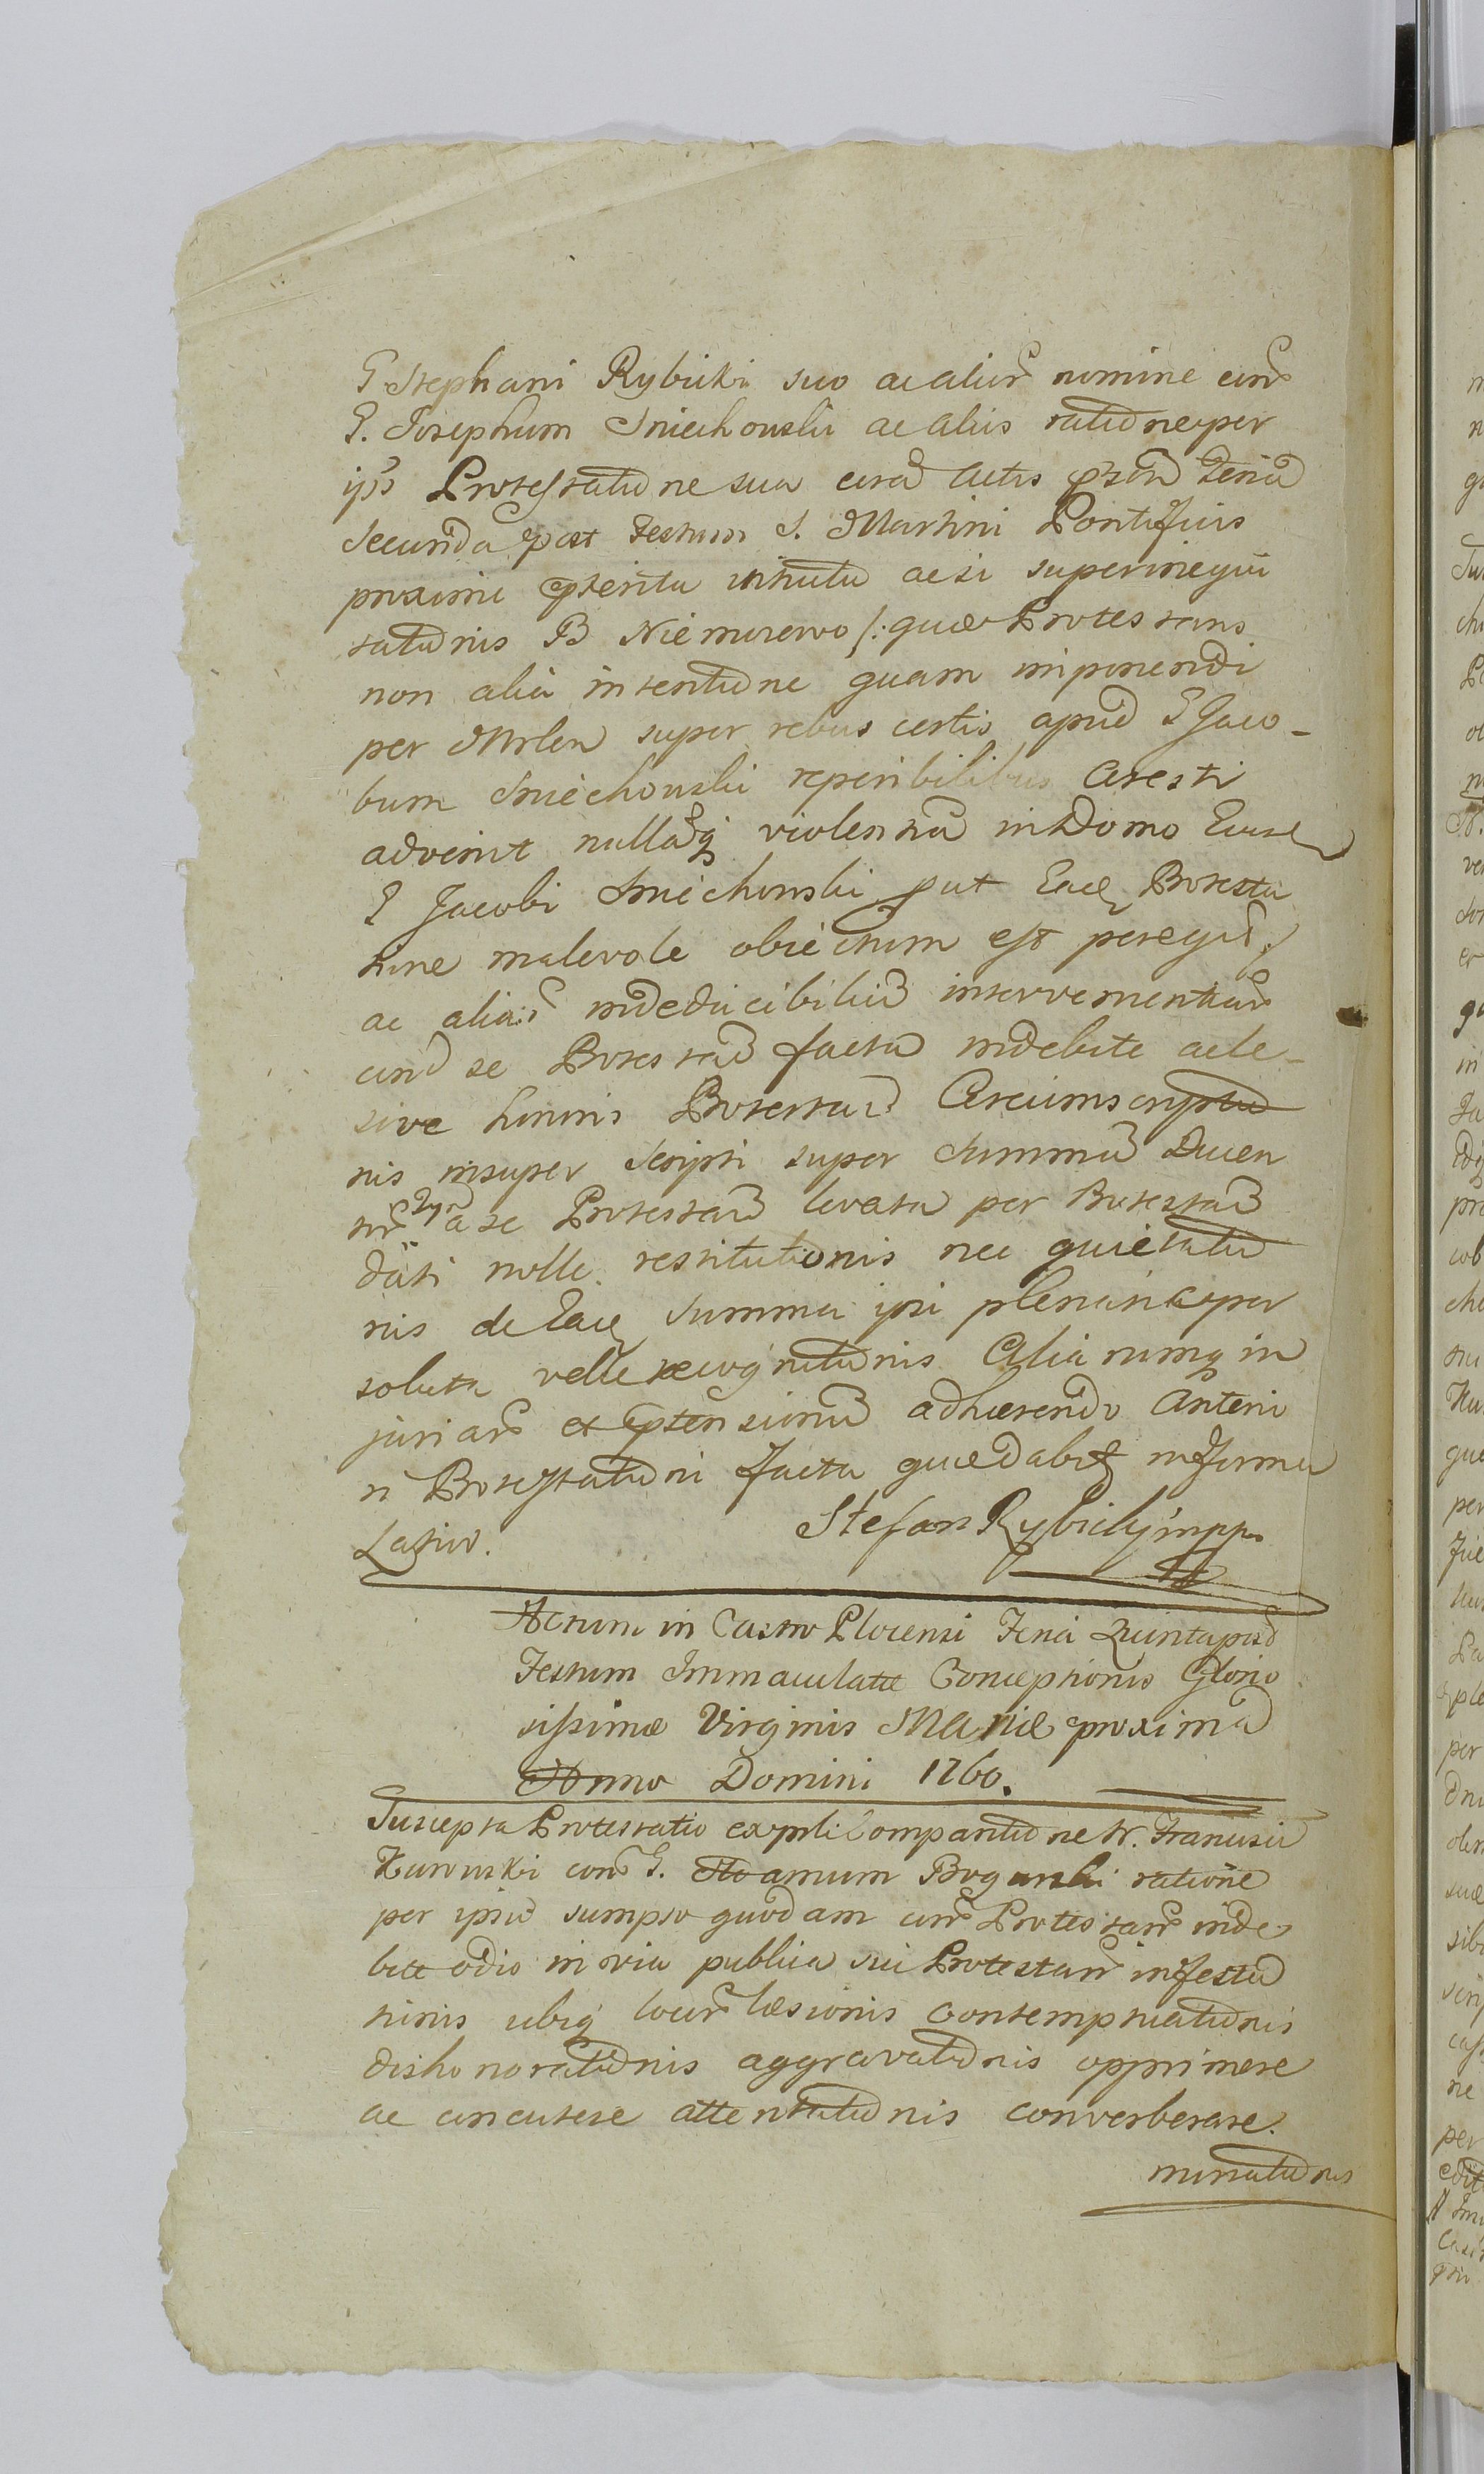 G Stephani Rybicki suo ac alior nomine con
G. Josephum Smiechowski ac aliis ratione per
ips Protestatione sua cora Actis pntibu Feria
Secunda post Festum S. Martini Pontificis
proxime pterita ac si super inequi
tationis B Niemirewo /: quæ Protestans
non alia intentione quam imponendi
per Mrlem super rebus certis apud G Jaco-
bum Smiechowski reperibilibus Aresti
advenit nullaq violentia in Domo Eius
G Jacobi Smiechowski put Ead Protesta
tione malevole obiectum est peregit /
ac aliar indeducibiliu interventar
con se Protestan facta indebite ac le-
sive honoris Protestan Circumscriptio
nis insuper scripti super Summa Ducen
a se Protestan levata per Protestan
dati nolle restitutionis nec quietatio
nis de Ead Summa ipsi plenarie per
soluta velle recognitionis Aliarumq in
juriar et ptensionu adhærendo Anterio
ri Protestationi facta quædabit in forma
Latiori. Stefan Rybicky mpp
Actum in Castro Plocensi Feria Quinta post
Festum Immaculatæ Conceptionis Glorio
sissimæ Virginis Mariæ proxima
Anno Domini 1760.
Suscepta Protestatio ex pnli Compantione N. Francisci
con G. Adamum ratione
per ipsu sumpto quodam con Protestan inde
bite odio in via publica sui Protestan infestio
nis ubiq locor læsionis contemptuationis
dishonorationis aggravationis opprimere
ac concutere attentationis converberare
minationis